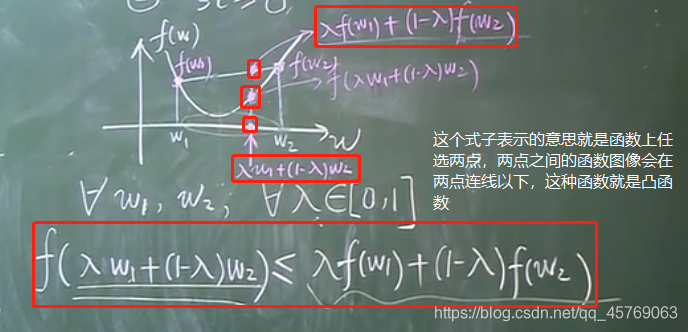 f(w)
λf(w₁)+(1-λ)f(w₂)
f(w₁)
f(w₂)
f(λw₁+(1-λ)w₂)
w₁
w₂
w
λw₁+(1-λ)w₂
这个式子表示的意思就是函数上任
选两点，两点之间的函数图像会在
两点连线以下，这种函数就是凸函
数
∀ w₁, w₂, ∀ λ∈[0,1]
f(λw₁+(1-λ)w₂)≤λf(w₁)+(1-λ)f(w₂)
https://blog.csdn.net/qq_45769063